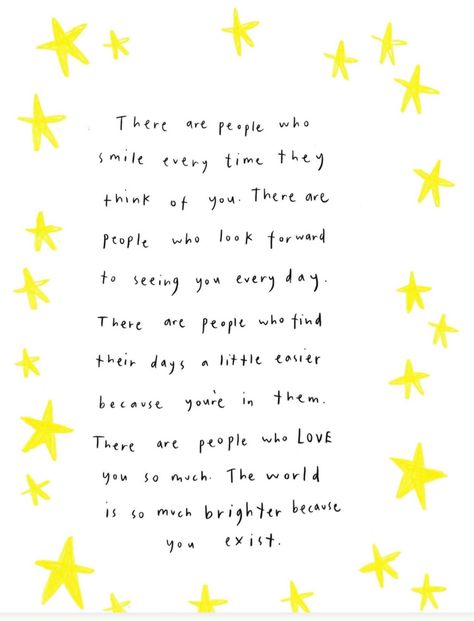 There are people who
smile every time they
think of you. There are
people who look forward
to seeing you every day.
There are people who find
their days a little easier
because you're in them.
There are people who LOVE
you so much. The world
is so much brighter because
you exist.